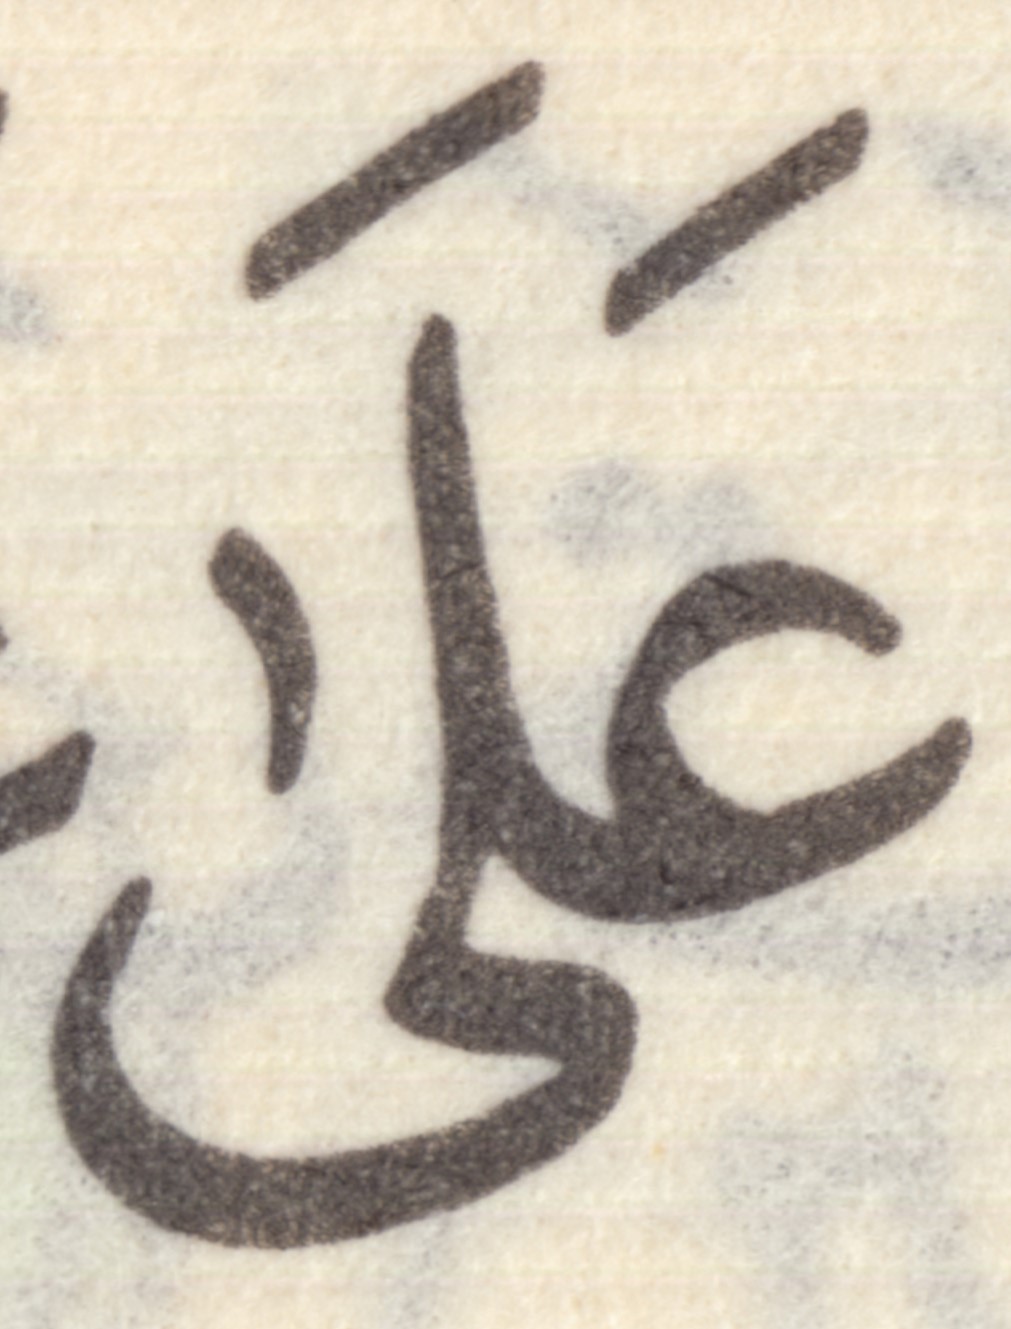 عَلَىٰ